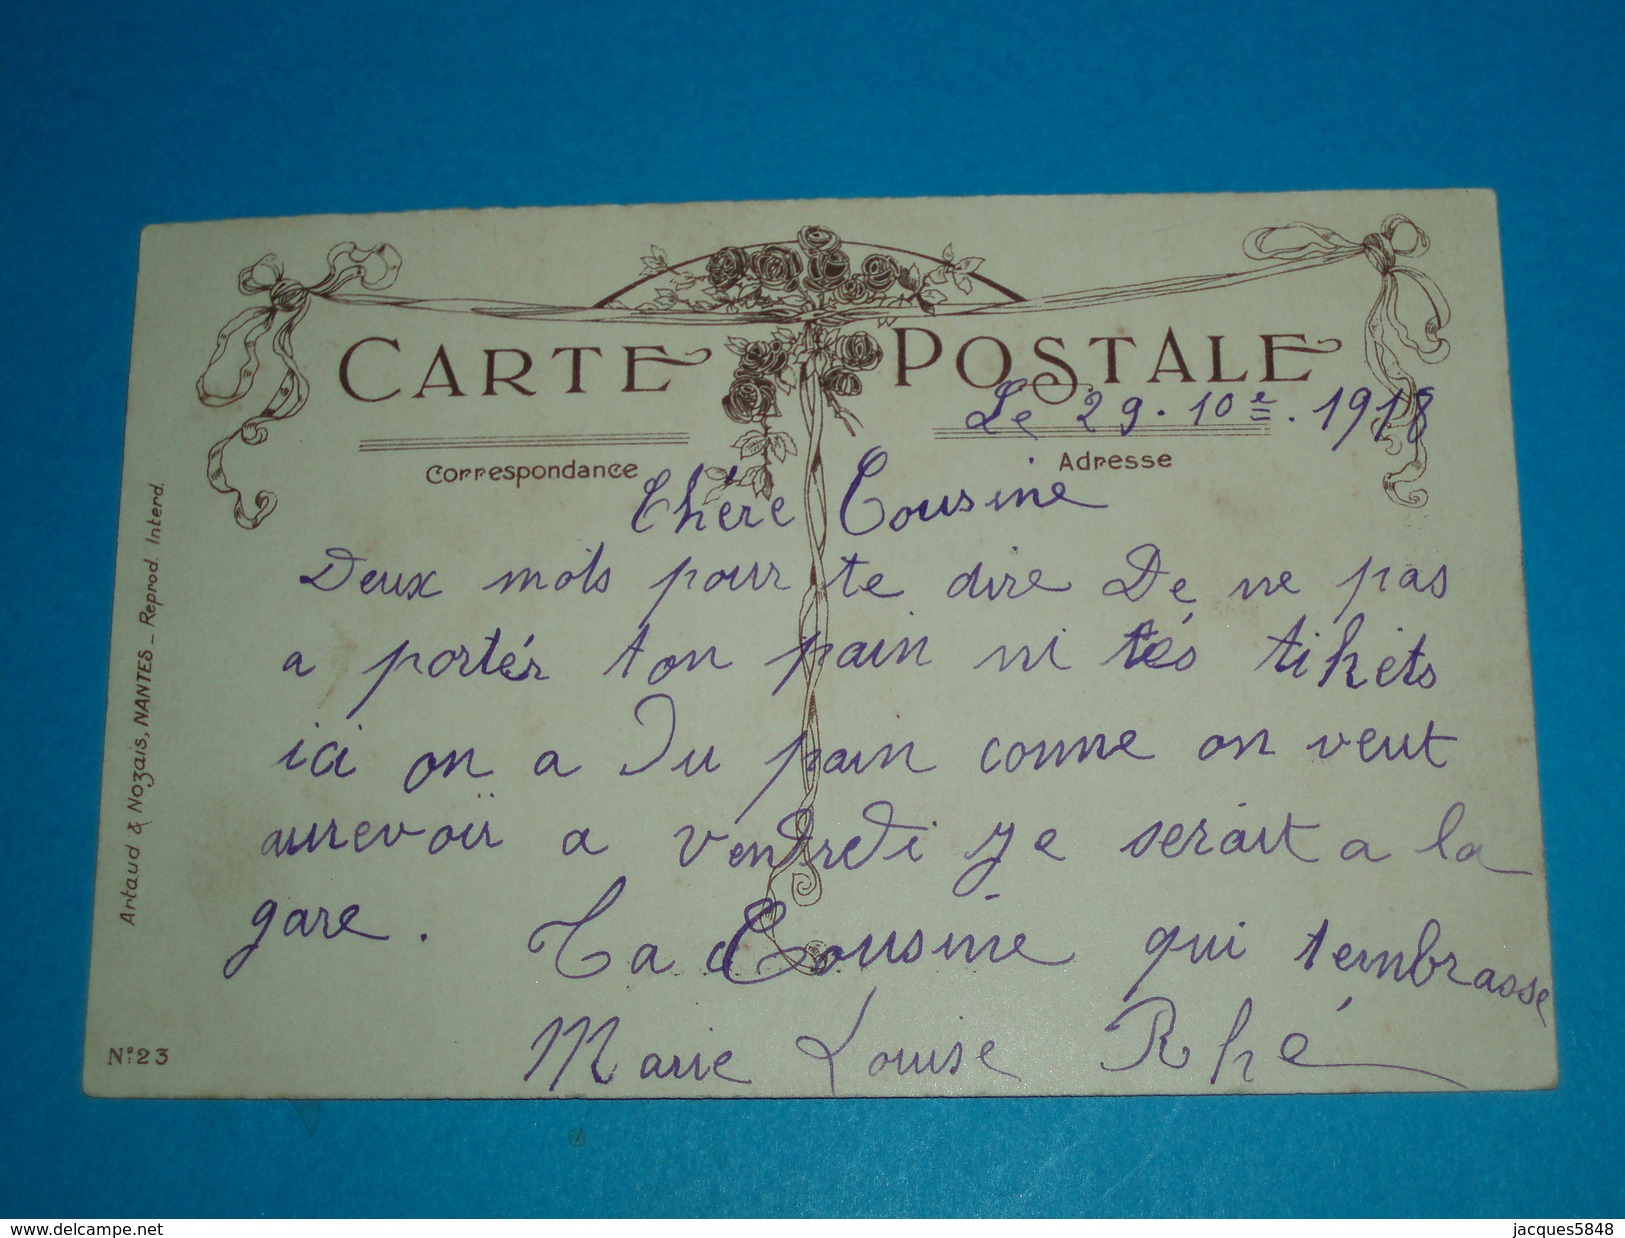 CARTE POSTALE
Le 29. 10e. 1918
Correspondance
Adresse
Chère Cousine
Deux mots pour te dire De ne pas
a portér ton pain ni tés tikets
ici on a Du pain comme on veut
aurevoir a vendredi je serait a la
gare.
Ta Cousine qui tembrasse
Marie Louise Rhé
Artaud & Nozais, NANTES - Reprod. Interd.
No 23
www.delcampe.net
jacques5848